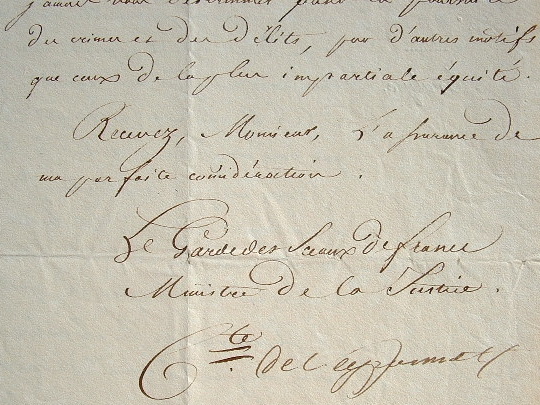 jamais vous déterminer la poursuite
des crimes et des délits, par d'autres motifs
que ceux de la plus impartiale équité.
Recevez, Monsieur, l'assurance de
ma parfaite considération.
Le Garde des Sceaux de france
Ministre de la Justice.
Cte. de Peyronnet